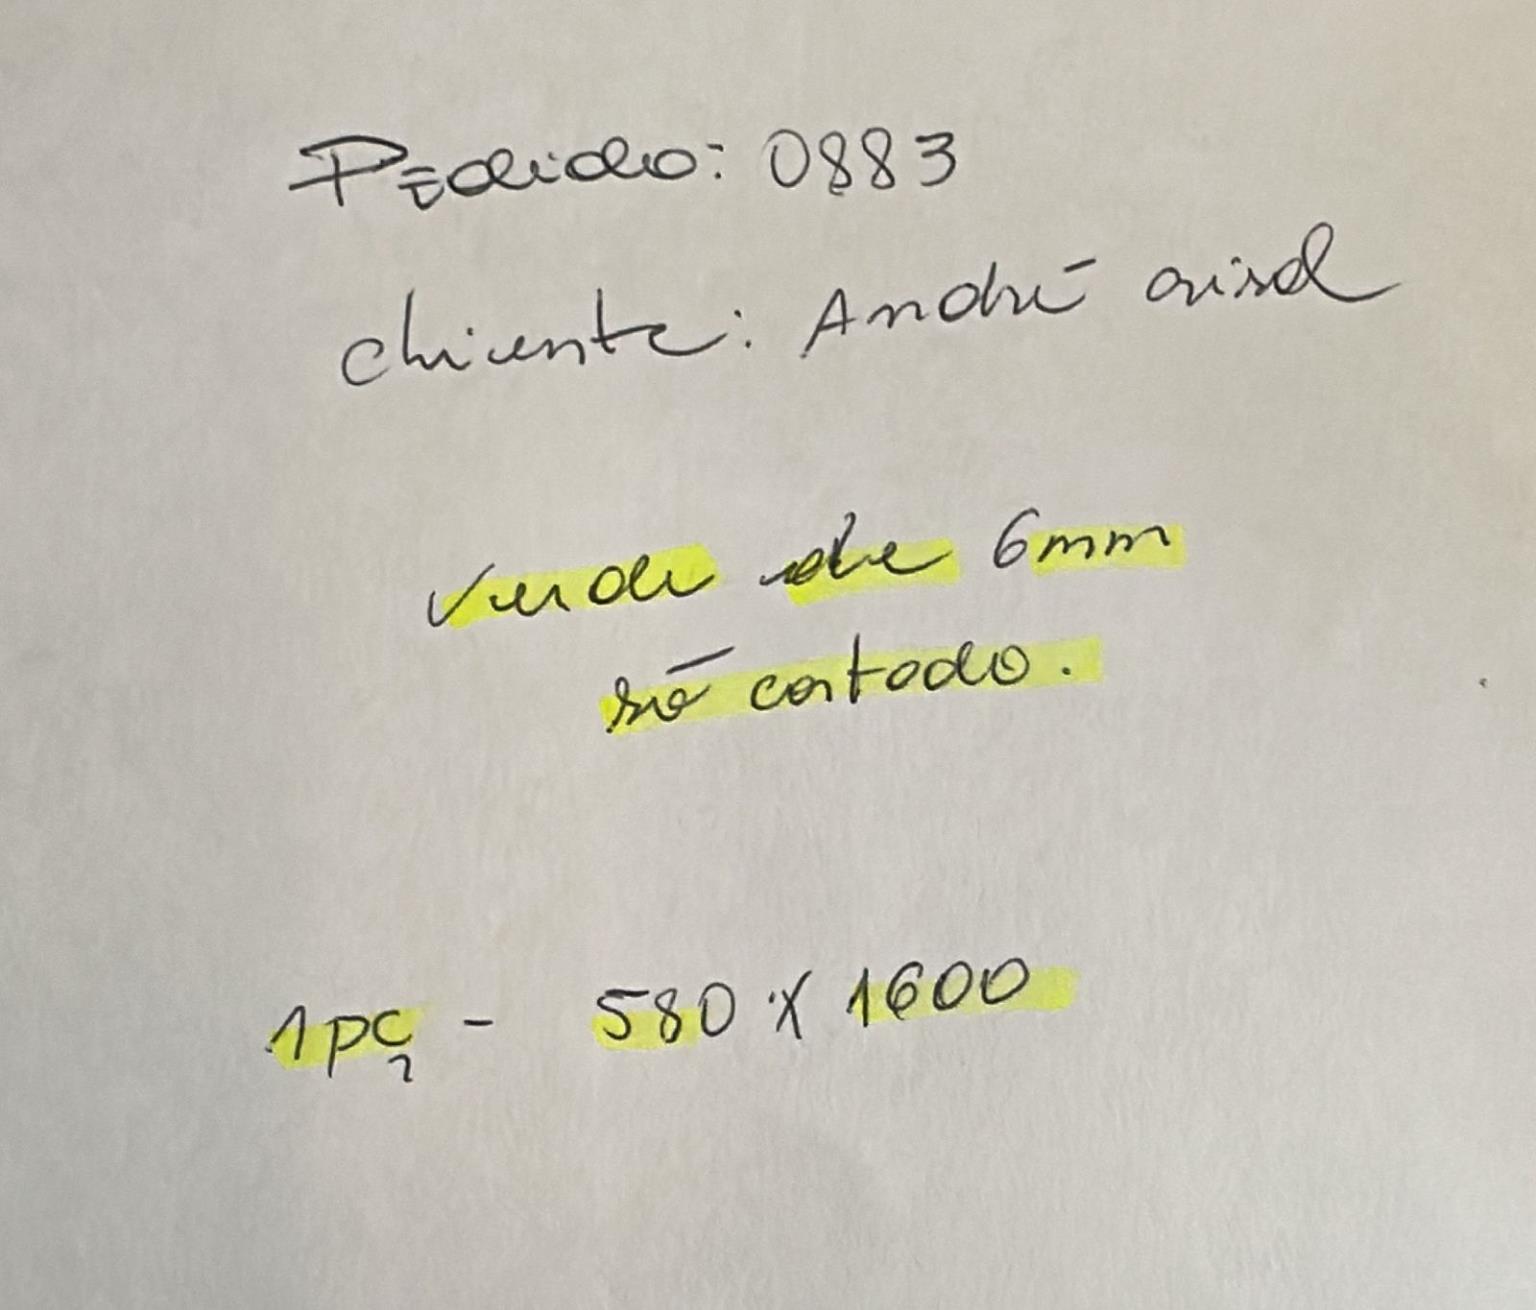 Pedido: 0883
Cliente: André
Verde de 6mm
só cortado.
1 pç - 580 X 1600